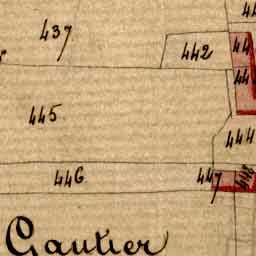 437
442
445
444
446
447
Gautier